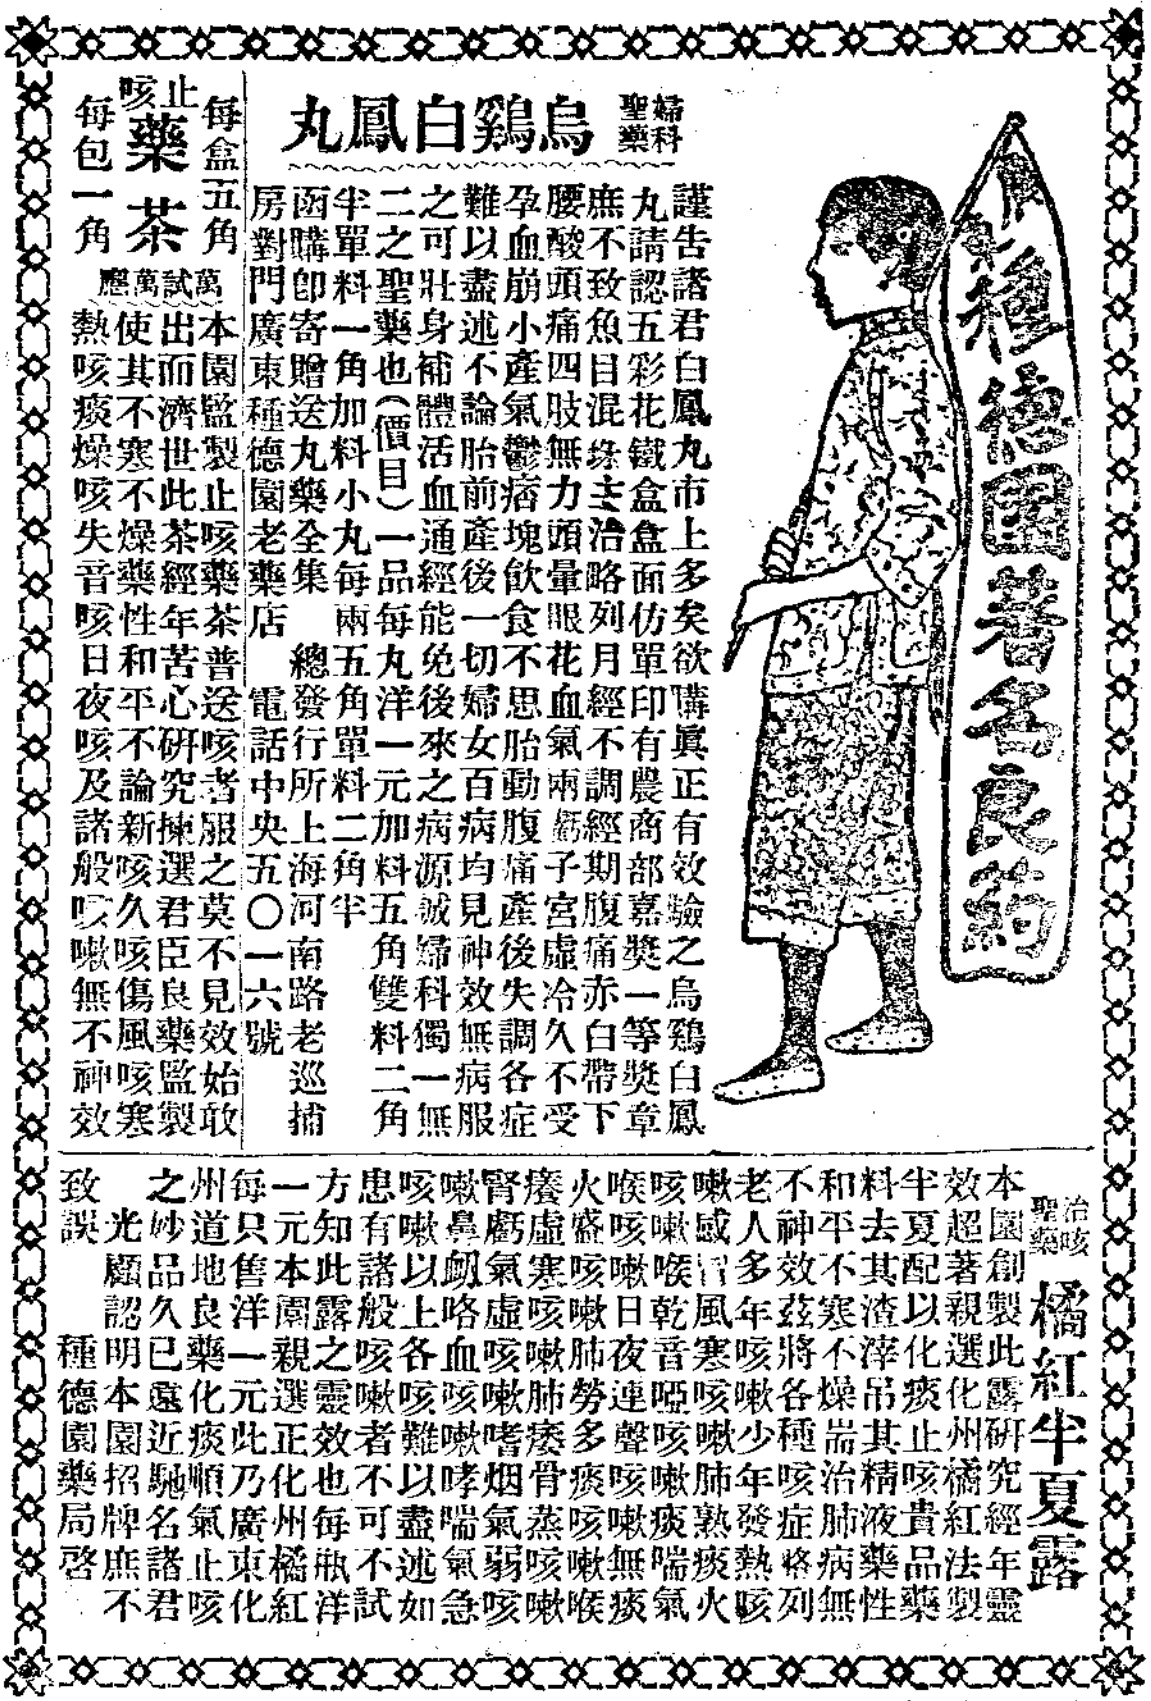 婦科
聖藥
烏鷄白鳳丸
謹告諸君白鳳丸市上多矣欲購眞正有效驗之烏鷄白鳳
丸請認五彩花鐵盒盒面仿單印有農商部嘉獎一等獎章
庶不致魚目混珠主治略列月經不調經期腹痛赤白帶下
腰酸頭痛四肢無力頭暈眼花血氣兩虧子宮虛冷久不受
孕血崩小產氣鬱痞塊飲食不思胎動腹痛產後失調各症
難以盡述不論胎前產後一切婦女百病均見神效無病服
之可壯身補體活血通經能免後來之病源誠婦科獨一無
二之聖藥也(價目)一品每丸洋一元加料五角雙料二角
半單料一角加料小丸每兩五角單料二角半
函購卽寄贈送丸藥全集 總發行所上海河南路老巡捕
房對門廣東種德園老藥店 電話中央五〇一六號
種德園著名良药
每盒五角
止咳
藥茶
每包一角
萬試萬應
本園監製止咳藥茶普送咳者服之莫不見效始敢
出而濟世此茶經年苦心研究揀選君臣良藥監製
使其不寒不燥藥性和平不論新咳久咳傷風咳寒
熱咳痰燥咳失音咳日夜咳及諸般咳嗽無不神效
治咳
聖藥
橘紅半夏露
本園創製此露研究經年靈
效超著親選化州橘紅法製
半夏配以化痰止咳貴品藥
料去其渣滓吊其精液藥性
和平不寒不燥耑治肺病無
不神效茲將各種咳症略列
老人多年咳嗽少年發熱咳
嗽感冒風寒咳嗽肺熟痰火
咳嗽喉乾音啞咳嗽痰喘氣
喉咳嗽日夜連聲咳嗽無痰
火盛咳嗽肺勞多痰咳嗽喉
癢虛寒咳嗽肺痿骨蒸咳嗽
腎虧氣虛咳嗽嗜烟氣弱咳
嗽鼻衂咯血咳嗽哮喘氣急
咳嗽以上各咳難以盡述如
患有諸般咳嗽者不可不試
方知此露之靈效也每瓶洋
一元本園親選正化州橘紅
每只售洋一元此乃廣東化
州道地良藥化痰順氣止咳
之妙品久已遠近馳名諸君
光顧認明本園招牌庶不
致誤 種德園藥局啓